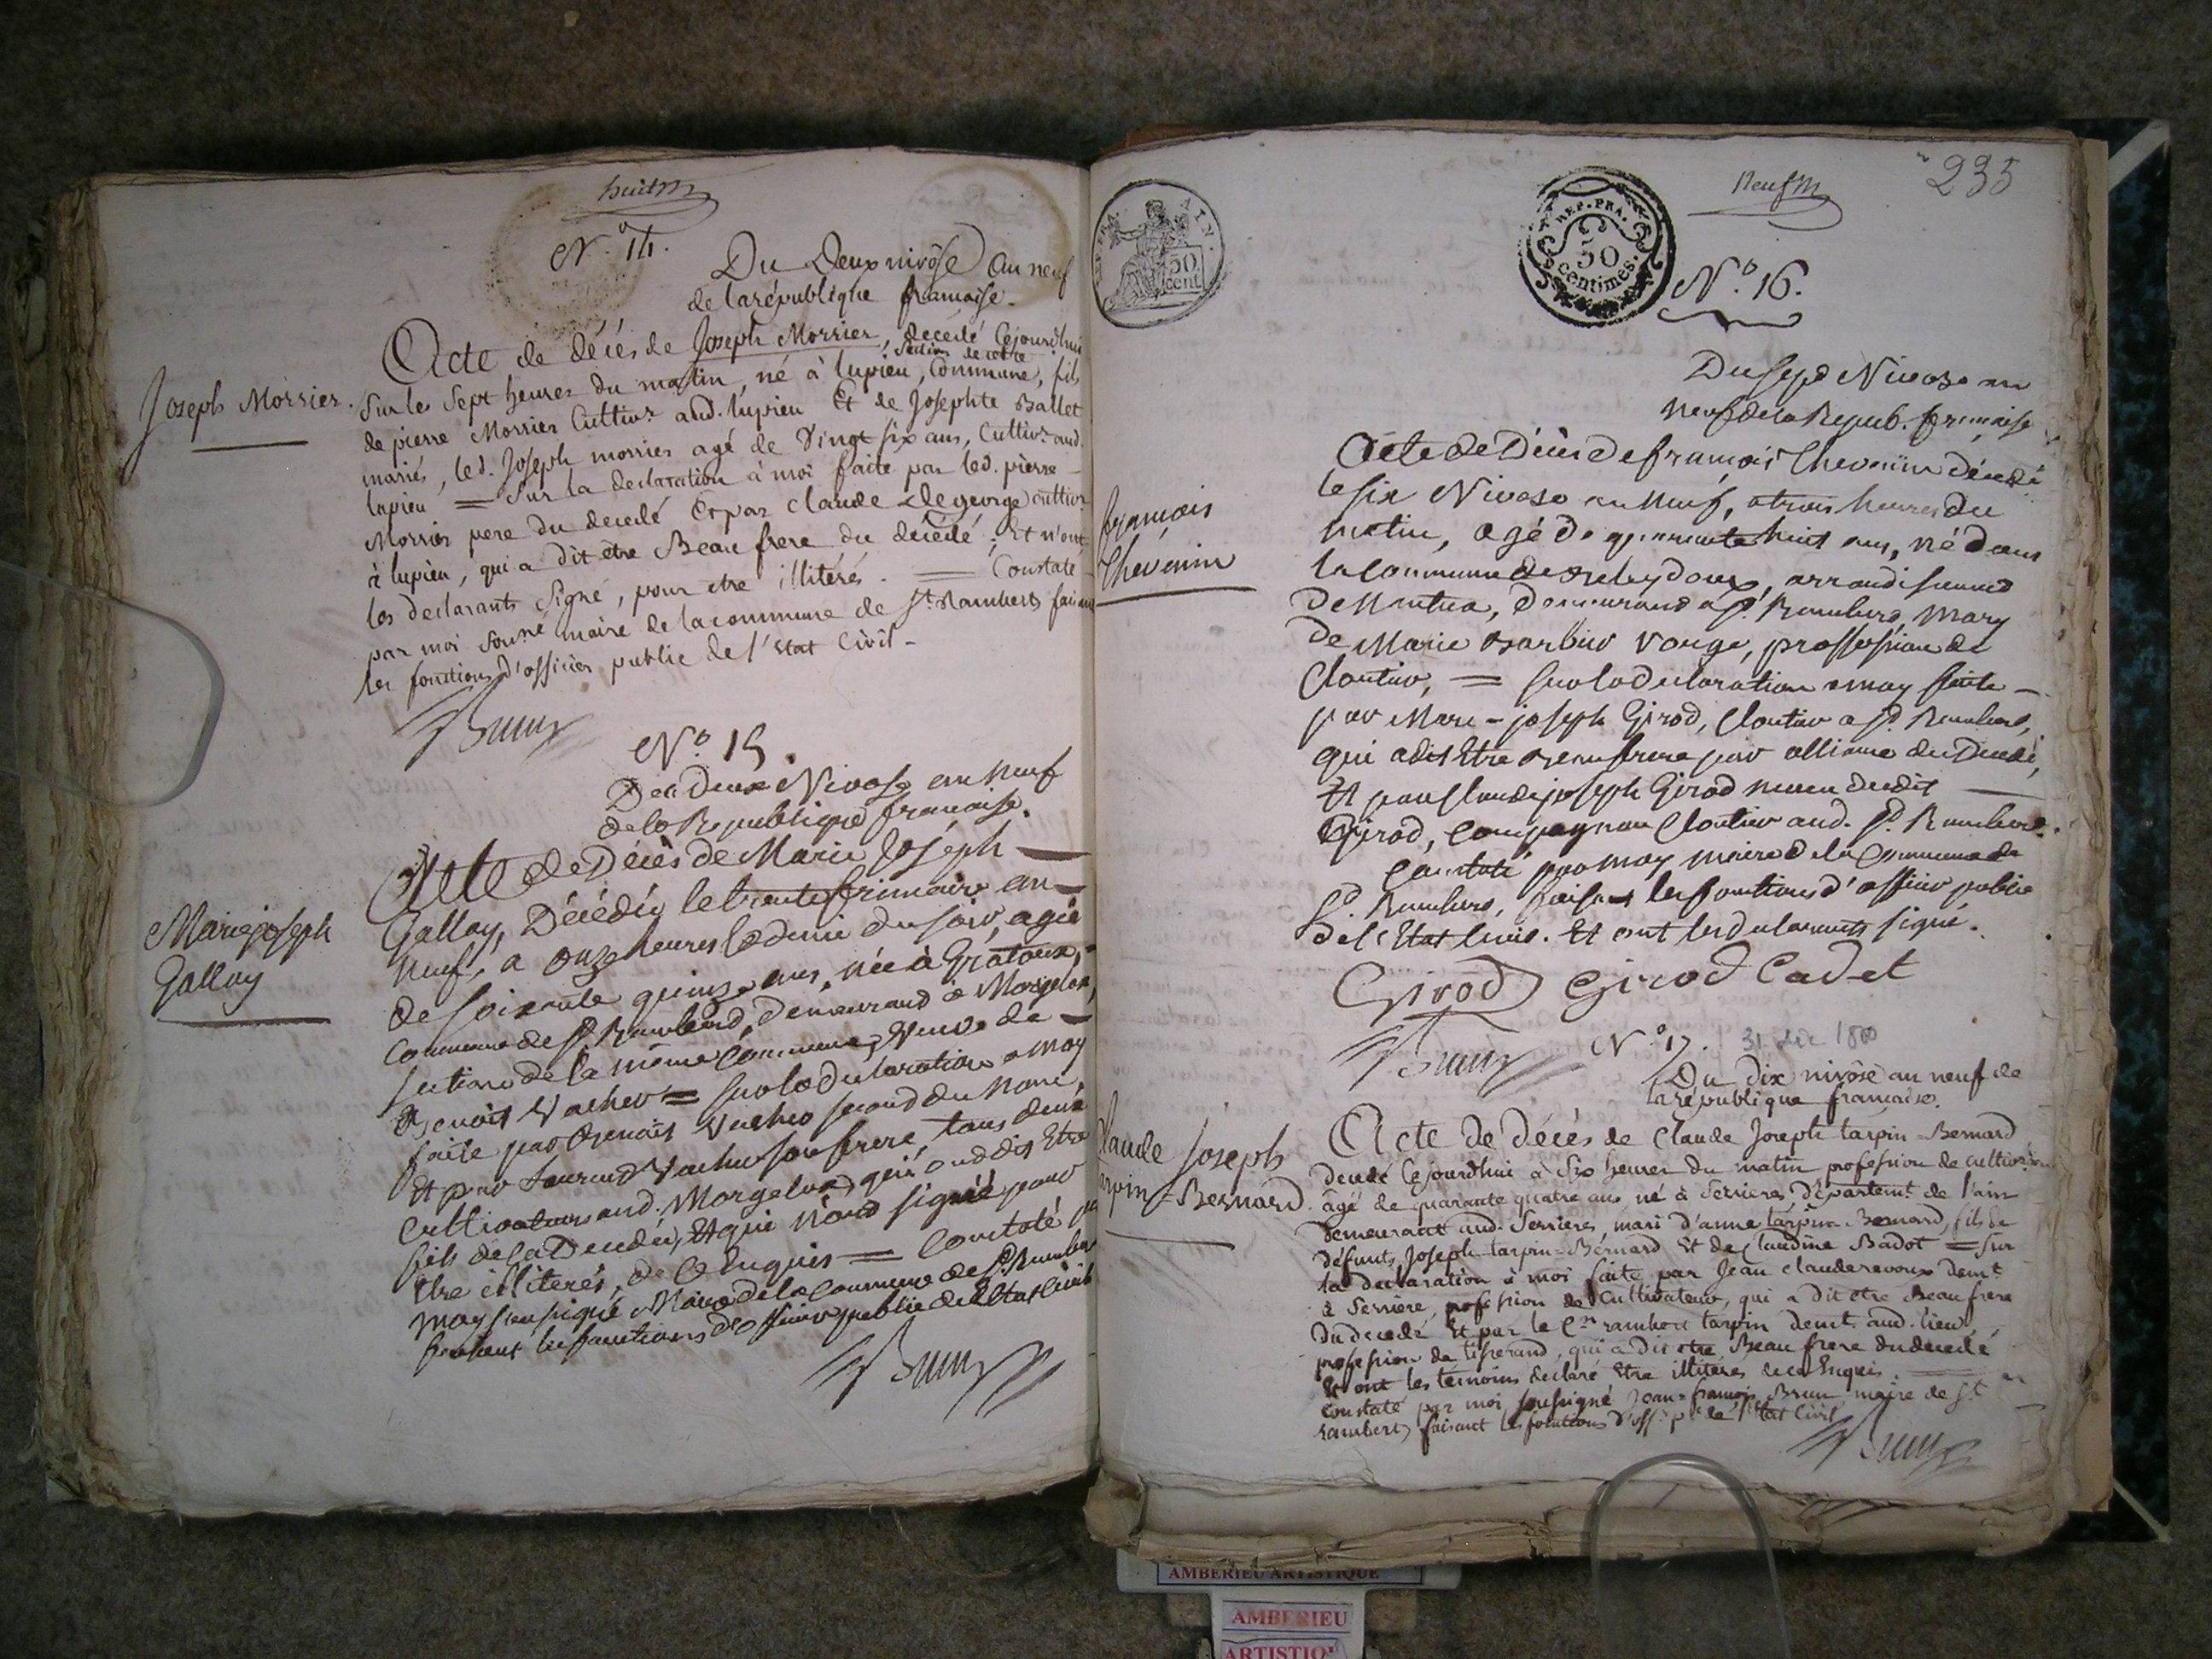 huit
N.° 14.
Du Deux nivôse an neuf
de la république française.
Joseph Morrier.
Acte de décés de Joseph Morrier, decedé Cejourd'hui
Sur les Sept heures du matin, né à lupieu, Section de cette Commune, fils
de pierre Morrier Cultivr. aud. lupieu Et de Josephte Ballet
mariés, led. Joseph morrier agé de Vingt six ans, Cultivr. aud.
lupieu = Sur la declaration à moi faite par led. pierre
Morrier pere du decedé Et par Claude Degeorge cultivr
à lupieu, qui a dit être Beau frere du décédé; Et n'ont
les declarants Signé, pour etre illitérés. = Constaté
par moi sousné maire de la commune de St. Rambert faisant
les fonctions d'officier public de l'Etat Civil -
Brun
N.° 15.
Du Deux Nivose an neuf
de la Republique française.
Marie joseph
Gallay
Acte de Décès de Marie Joséph
Gallay, Décédée le trente frimaire an
neuf, a onze heures & demie du soir, agée
de soixante quinze ans, née à Grataux,
Commune de St. Rambert, demeurant à Morgelas,
section de la même Commune, Veuve de
Benoit Vacher = sur la declaration a moy
faite par Benoit Vacher second du nom,
Et par Laurent Vacher son frere, tous deux
Cultivateurs aud. Morgelas, qui ont dit Etre
fils de la Decedée, Et qui n'ont signé pour
Etre illiterés, de ce Enquis = Constaté par
moy soussigné Maire de la Commune de St. Rambert
faisant les fonctions d'officier public de l'Etat Civil
Brun
Neuf
235
REP. FRA. AIN.
50 cent
REP. FRA.
50
centimes.
N.° 16.
Du sept Nivose an
neuf de la Repub. française
françois
Chevenin
Acte de Décès de françois Chevenin décédé
le six Nivose an neuf, a trois heures du
matin, agé de quarante huit ans, né dans
la Commune de arrondissement
de Nantua, demeurant a St. Rambert, mary
de Marie Barbier Vouge, proffession de
Cloutier, = sur la declaration a moy faite
par Marc-joseph Girod, Cloutier a St. Rambert,
qui a dit Etre Beaufrere par alliance du Decedé,
Et par Claude joseph Girod neveu dudit
Girod, Compagnon Cloutier aud. St. Rambert.
Constaté par moy maire de la Commune de
St. Rambert, faisant les fonctions d'officier public
de l'Etat Civil. Et ont les declarants signé.
Girod Girod Cadet
Brun
N.° 17. 31 Déc 1800
Du dix nivôse an neuf de
la république française.
Claude Joseph
tarpin-Bernard.
Acte de décés de Claude Joseph tarpin-Bernard
decedé Cejourdhui à Six heures du matin profession de cultivateur
âgé de quarante quatre ans né à Serrieres départemt. de l'ain
Demeurant aud. Serrieres, mari d'anne tarpin-Bernard, fils de
défunts Joseph tarpin-Bernard Et de Claudine Badot = Sur
la declaration à moi faite par Jean Clauderavoux demt.
à Serriere, profession de Cultivateur, qui a dit etre Beau frere
du decedé Et par le Cen. rambert tarpin demt. aud. lieu,
profession de tisserand, qui a dit etre Beau frere du decedé
Et ont les témoins declaré Etre illitérés de ce Enquis.
Constaté par moi, soussigné Jean-françois Brun maire de St.
rambert, faisant les fonctions d'off. p. de l'Etat Civil
Brun
AMBERIEU ARTISTIQUE
AMBERIEU
ARTISTIQUE